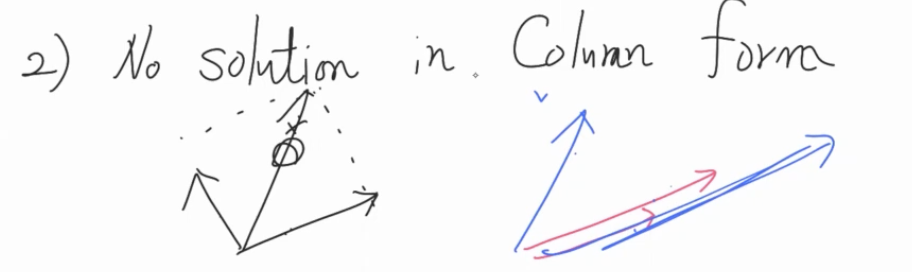 2) No solution in. Column form
v